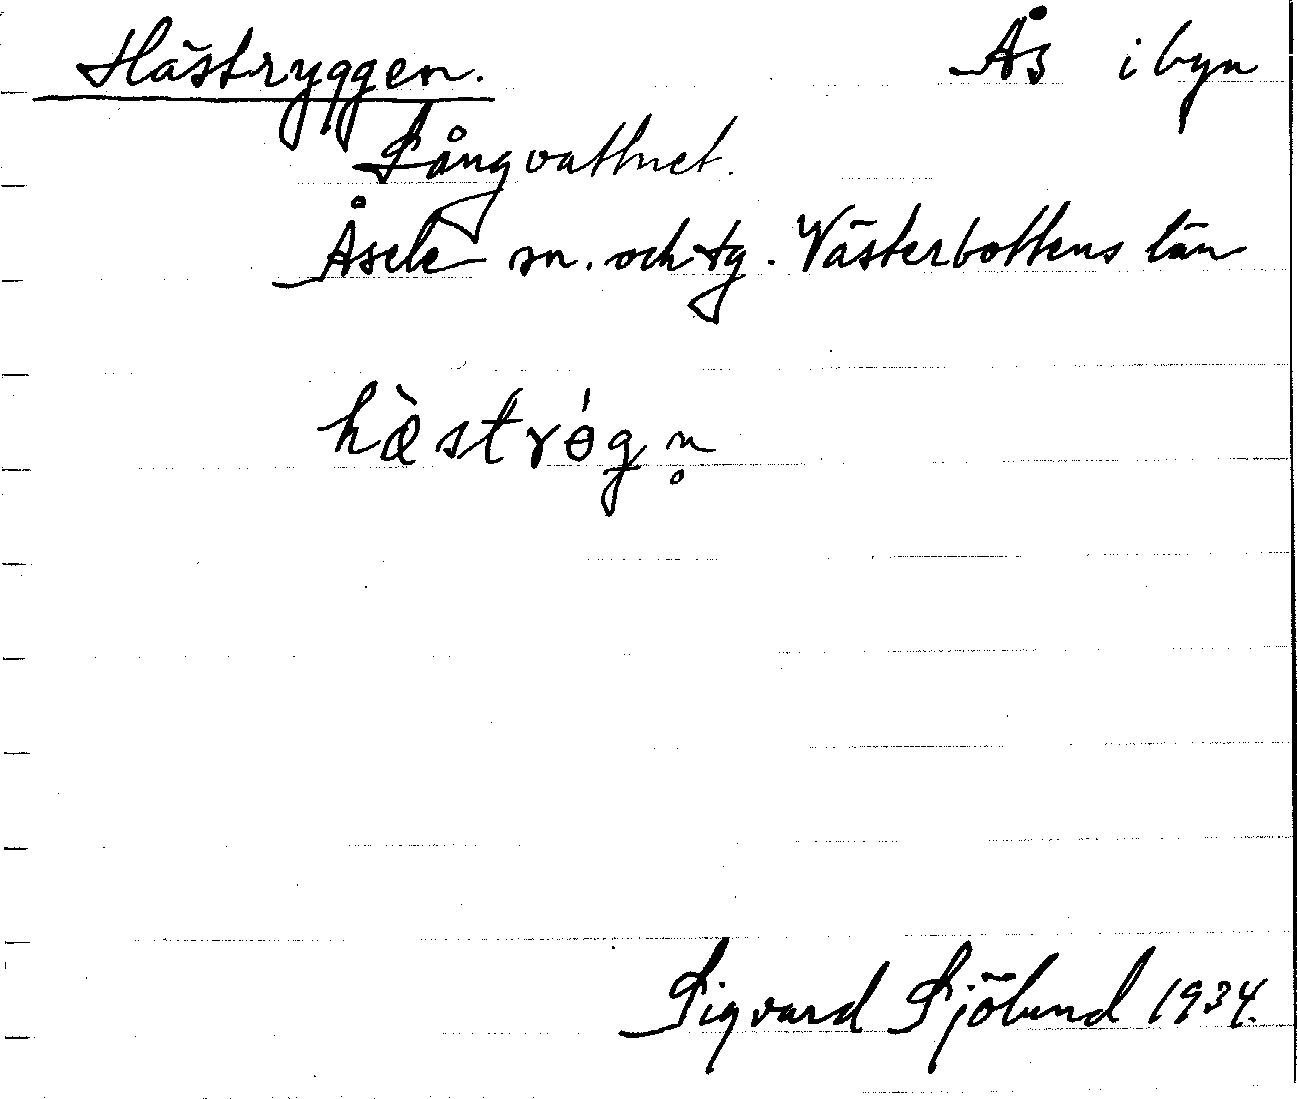 Hästryggen. Ås i byn
Långvattnet.
Åsele sn. och tg. Västerbottens län
hæ̀strɵ́gn̥
Sigvard Sjölund 1934.